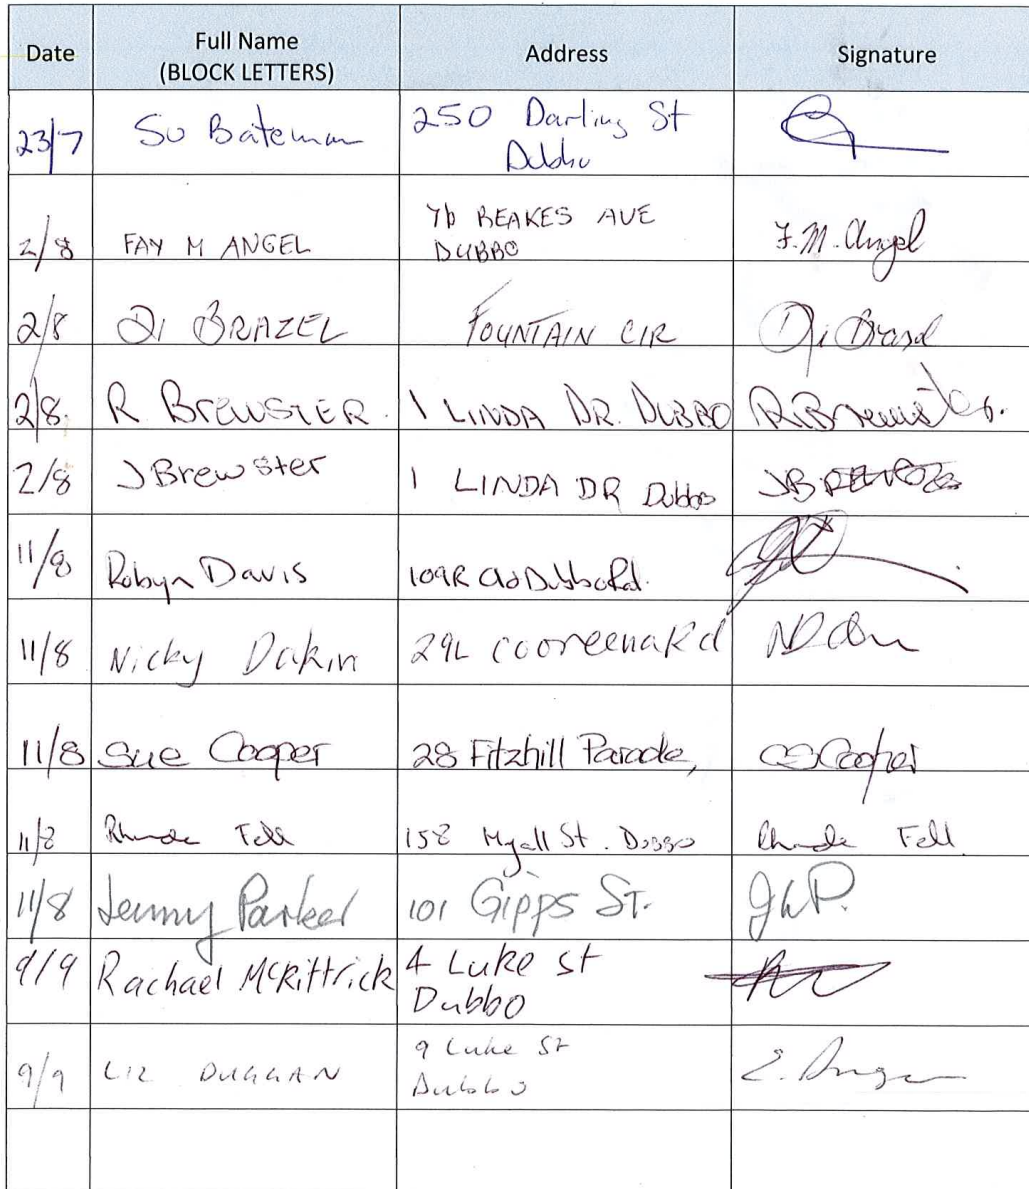 Date Full Name (BLOCK LETTERS) Address Signature
23/7 Su Bateman 250 Darling St Dubbo
2/8 FAY M ANGEL 7b BEAKES AVE DUBBO F.M. Angel
2/8 DI BRAZEL FOUNTAIN CIR Di Brazel
2/8. R. BREWSTER. 1 LINDA DR. DUBBO R Brewster.
2/8 J Brewster 1 LINDA DR Dubbo
11/8 Robyn Davis 109R Old Dubbo Rd.
11/8 Nicky Dakin 29L cooreena Rd
11/8 Sue Cooper 28 Fitzhill Parade, S Cooper
11/8 Rhonda Fell 158 Myall St. Dubbo Rhonda Fell
11/8 Jenny Parker 101 GIPPS ST.
9/9 Rachael McKittrick 4 Luke st Dubbo
9/9 LIZ DUGGAN 9 Luke St Dubbo